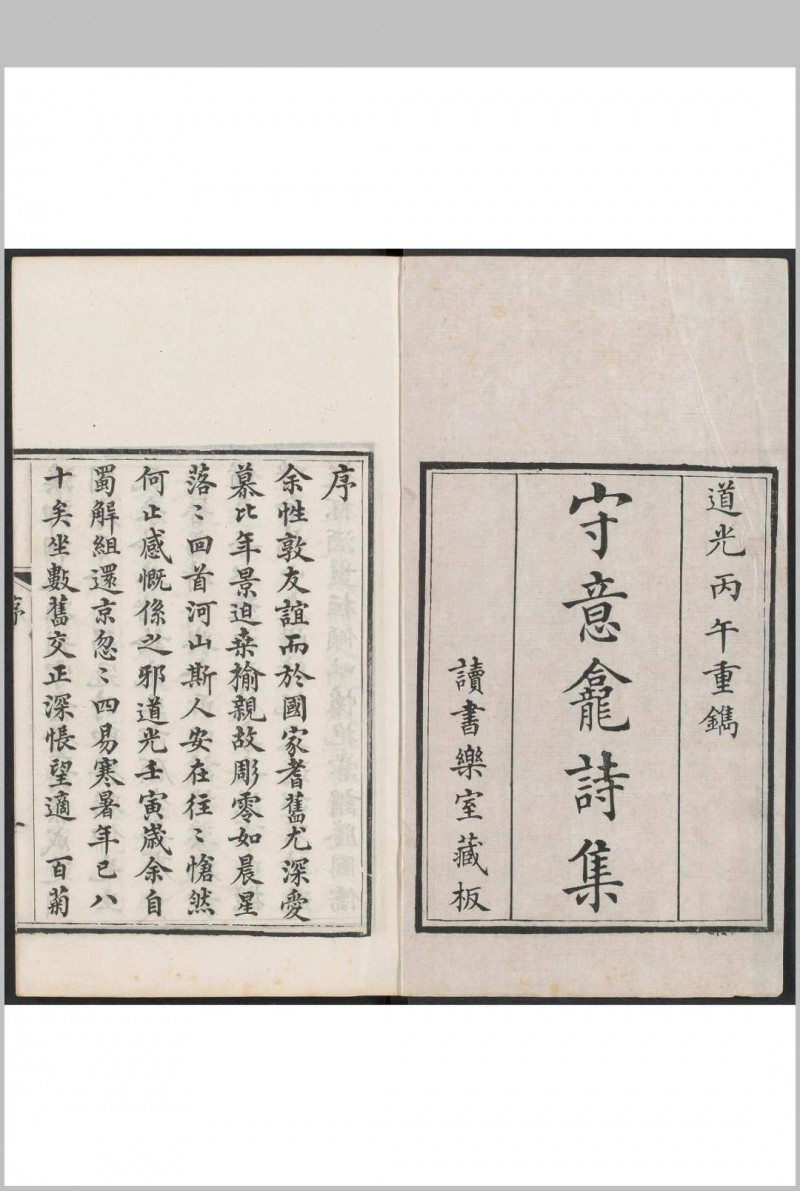 道光丙午重鐫
守意龕詩集
讀書樂室藏板
序
余性敦友誼而於國家耆舊尤深愛
慕比年景迫桑榆親故彫零如晨星
落〻回首河山斯人安在往〻愴然
何止感慨係之邪道光壬寅歲余自
蜀解組還京忽〻四易寒暑年已八
十矣坐數舊交正深悵望適百菊
序